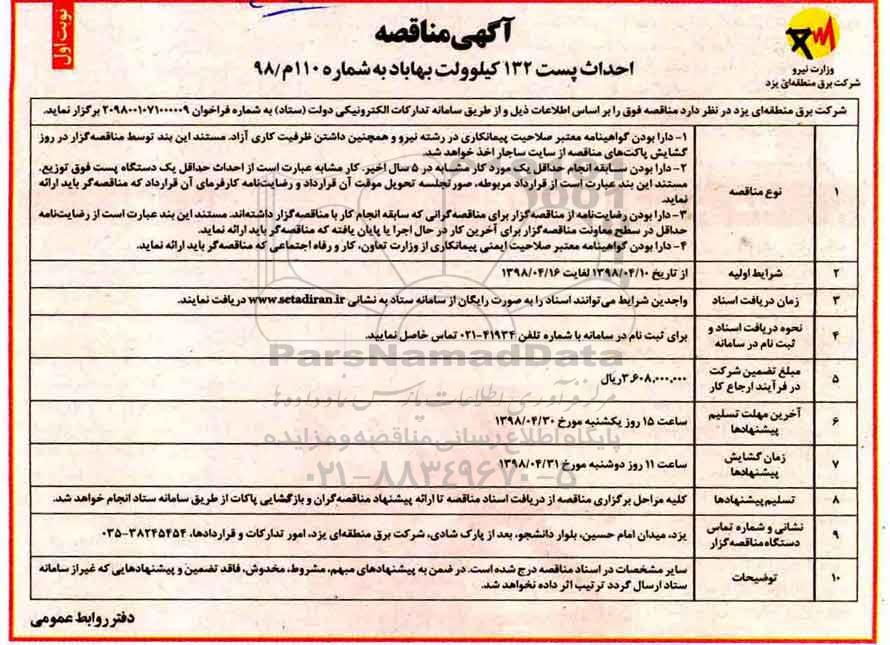 نوبت اول
وزارت نیرو
شرکت برق منطقه‌ای یزد
آگهی مناقصه
احداث پست ۱۳۲ کیلوولت بهاباد به شماره ۱۱۰م/۹۸
شرکت برق منطقه‌ای یزد در نظر دارد مناقصه فوق را بر اساس اطلاعات ذیل و از طریق سامانه تدارکات الکترونیکی دولت (ستاد) به شماره فراخوان ۲۰۹۸۰۰۱۰۷۱۰۰۰۰۰۹ برگزار نماید.
۱
نوع مناقصه
۱- دارا بودن گواهینامه معتبر صلاحیت پیمانکاری در رشته نیرو و همچنین داشتن ظرفیت کاری آزاد. مستند این بند توسط مناقصه‌گزار در روز
گشایش پاکت‌های مناقصه از سایت ساجار اخذ خواهد شد.
۲- دارا بودن سابقه انجام حداقل یک مورد کار مشابه در ۵ سال اخیر. کار مشابه عبارت است از احداث حداقل یک دستگاه پست فوق توزیع.
مستند این بند عبارت است از قرارداد مربوطه، صورتجلسه تحویل موقت آن قرارداد و رضایت‌نامه کارفرمای آن قرارداد که مناقصه‌گر باید ارائه
نماید.
۳- دارا بودن رضایت‌نامه از مناقصه‌گزار برای مناقصه‌گرانی که سابقه انجام کار با مناقصه‌گزار داشته‌اند. مستند این بند عبارت است از رضایت‌نامه
حداقل در سطح معاونت مناقصه‌گزار برای آخرین کار در حال اجرا یا پایان یافته که مناقصه‌گر باید ارائه نماید.
۴- دارا بودن گواهینامه معتبر صلاحیت ایمنی پیمانکاری از وزارت تعاون، کار و رفاه اجتماعی که مناقصه‌گر باید ارائه نماید.
۲
شرایط اولیه
از تاریخ ۱۳۹۸/۰۴/۱۰ لغایت ۱۳۹۸/۰۴/۱۶
۳
زمان دریافت اسناد
واجدین شرایط می‌توانند اسناد را به صورت رایگان از سامانه ستاد به نشانی www.setadiran.ir دریافت نمایند.
۴
نحوه دریافت اسناد و
ثبت نام در سامانه
برای ثبت نام در سامانه با شماره تلفن ۴۱۹۳۴-۰۲۱ تماس حاصل نمایید.
۵
مبلغ تضمین شرکت
در فرآیند ارجاع کار
۳,۶۰۸,۰۰۰,۰۰۰ ریال
۶
آخرین مهلت تسلیم
پیشنهادها
ساعت ۱۵ روز یکشنبه مورخ ۱۳۹۸/۰۴/۳۰
۷
زمان گشایش
پیشنهادها
ساعت ۱۱ روز دوشنبه مورخ ۱۳۹۸/۰۴/۳۱
۸
تسلیم پیشنهادها
کلیه مراحل برگزاری مناقصه از دریافت اسناد مناقصه تا ارائه پیشنهاد مناقصه‌گران و بازگشایی پاکات از طریق سامانه ستاد انجام خواهد شد.
۹
نشانی و شماره تماس
دستگاه مناقصه‌گزار
یزد، میدان امام حسین، بلوار دانشجو، بعد از پارک شادی، شرکت برق منطقه‌ای یزد، امور تدارکات و قراردادها، ۳۸۲۴۵۴۵۴-۰۳۵
۱۰
توضیحات
سایر مشخصات در اسناد مناقصه درج شده است. در ضمن به پیشنهادهای مبهم، مشروط، مخدوش، فاقد تضمین و پیشنهادهایی که غیر از سامانه
ستاد ارسال گردد ترتیب اثر داده نخواهد شد.
دفتر روابط عمومی
ParsNamadData
مرکز فرآوری اطلاعات پارس نماد داده ها
پایگاه اطلاع رسانی مناقصه و مزایده
۰۲۱-۸۸۳۴۹۶۷۰-۵